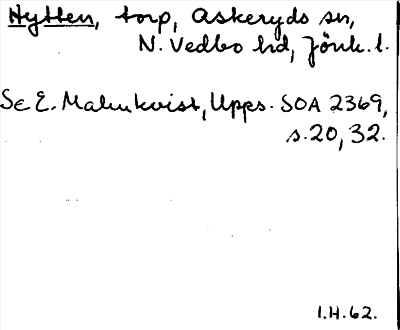 Hytten, torp, Askeryds sn,
N. Vedbo hd, Jönk. l.
Se E. Malmkvist, Upps. SOA 2369,
s. 20, 32.
I.H. 62.